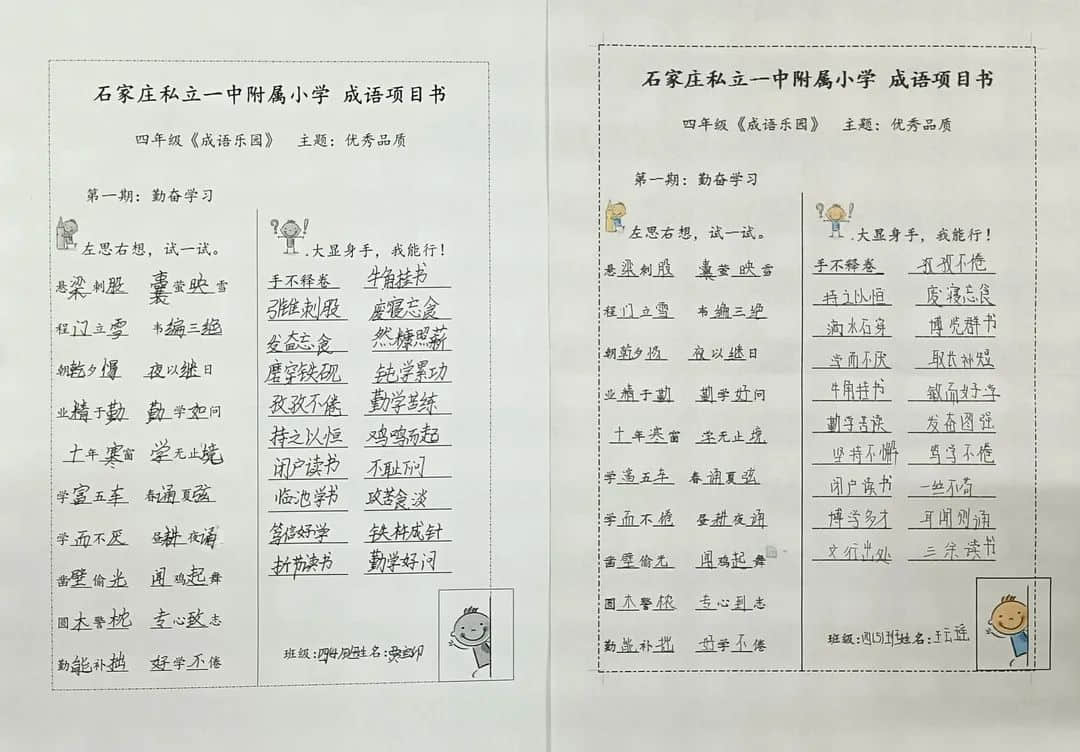 石家庄私立一中附属小学 成语项目书
四年级《成语乐园》 主题：优秀品质
第一期：勤奋学习
左思右想，试一试。
悬梁刺股 囊萤映雪
程门立雪 韦编三绝
朝乾夕惕 夜以继日
业精于勤 勤学如问
十年寒窗 学无止境
学富五车 春诵夏弦
学而不厌 昼耕夜诵
凿壁偷光 闻鸡起舞
圆木警枕 专心致志
勤能补拙 好学不倦
.大显身手，我能行！
手不释卷 牛角挂书
引锥刺股 废寝忘食
发奋忘食 然糠照薪
磨穿铁砚 钝学累功
孜孜不倦 勤学苦练
持之以恒 鸡鸣而起
闭户读书 不耻下问
临池学书 攻苦食淡
笃信好学 铁杵成针
折节读书 勤学好问
班级: 姓名:
石家庄私立一中附属小学 成语项目书
四年级《成语乐园》 主题：优秀品质
第一期：勤奋学习
左思右想，试一试。
悬梁刺股 囊萤映雪
程门立雪 韦编三绝
朝乾夕惕 夜以继日
业精于勤 勤学好问
十年寒窗 学无止境
学富五车 春诵夏弦
学而不倦 昼耕夜诵
凿壁偷光 闻鸡起舞
圆木警枕 专心到志
勤能补拙 好学不倦
.大显身手，我能行！
手不释卷 孜孜不倦
持之以恒 废寝忘食
滴水石穿 博览群书
学而不厌 取长补短
牛角挂书 敏而好学
勤学苦读 发奋图强
坚持不懈 笃学不倦
闭户读书 一丝不苟
博学多才 耳闻则诵
文行出处 三余读书
班级: 姓名: